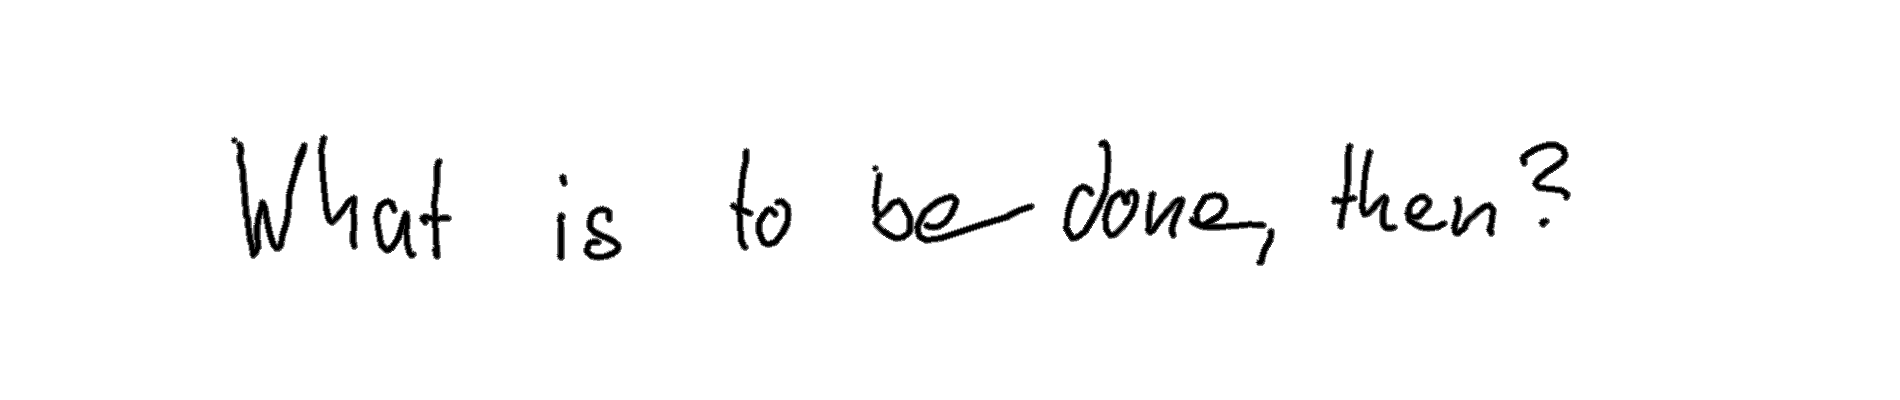 What is to be done, then?